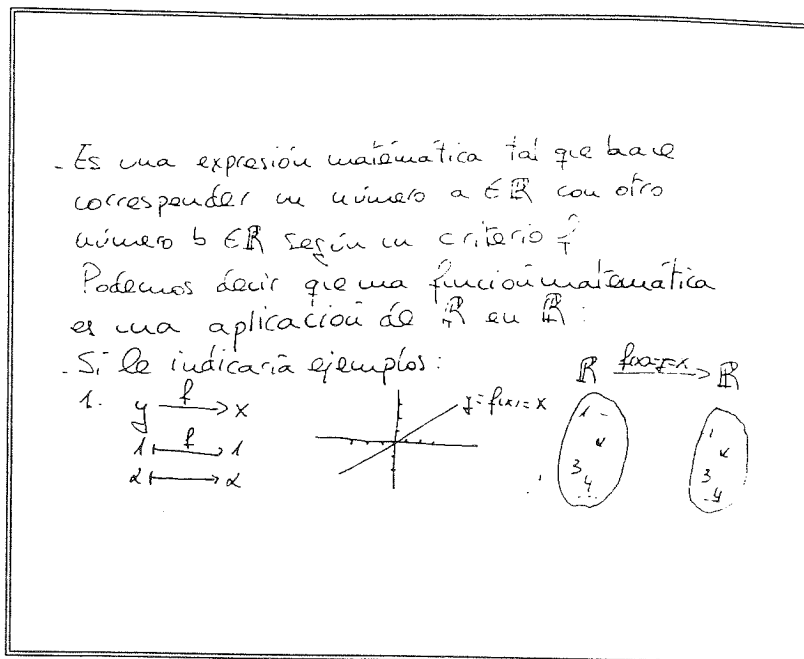 - Es una expresión matemática tal que hace
corresponder un número a ∈ ℝ con otro
número b ∈ ℝ según un criterio f
Podemos decir que una función matemática
es una aplicación de ℝ en ℝ:
- Si le indicaría ejemplos:
1. y —f→ x
1 —f→ 1
2 —→ 2
y = f(x) = x
ℝ f(x)=y=x → ℝ
1
2
3
4
...
1
2
3
4
...